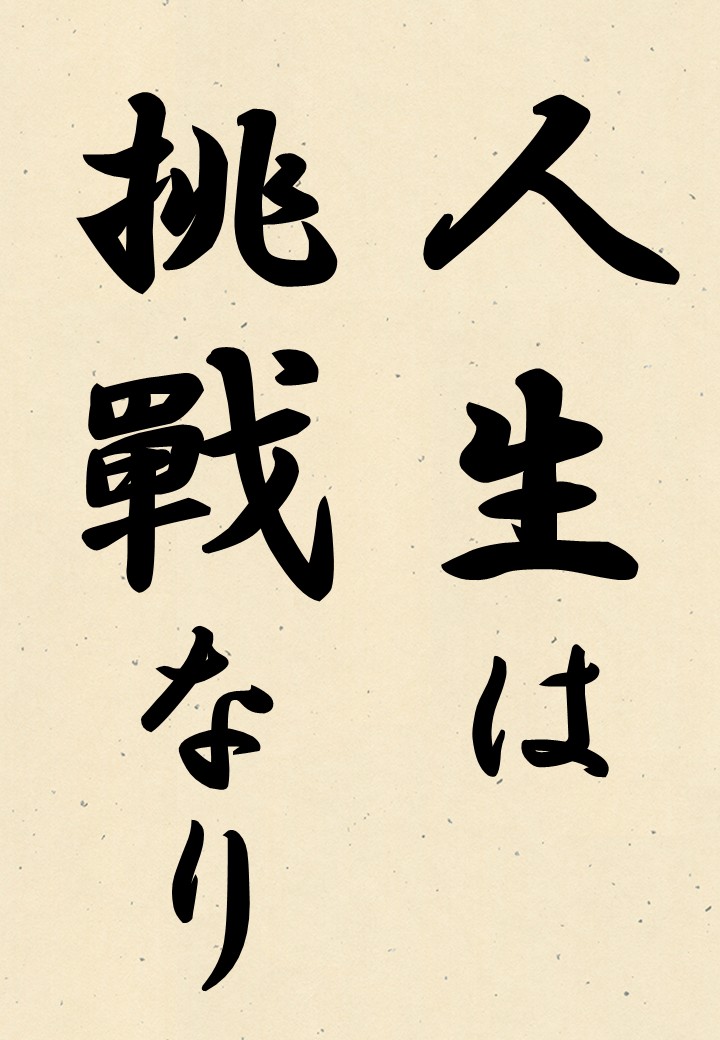 人生は
挑戰なり